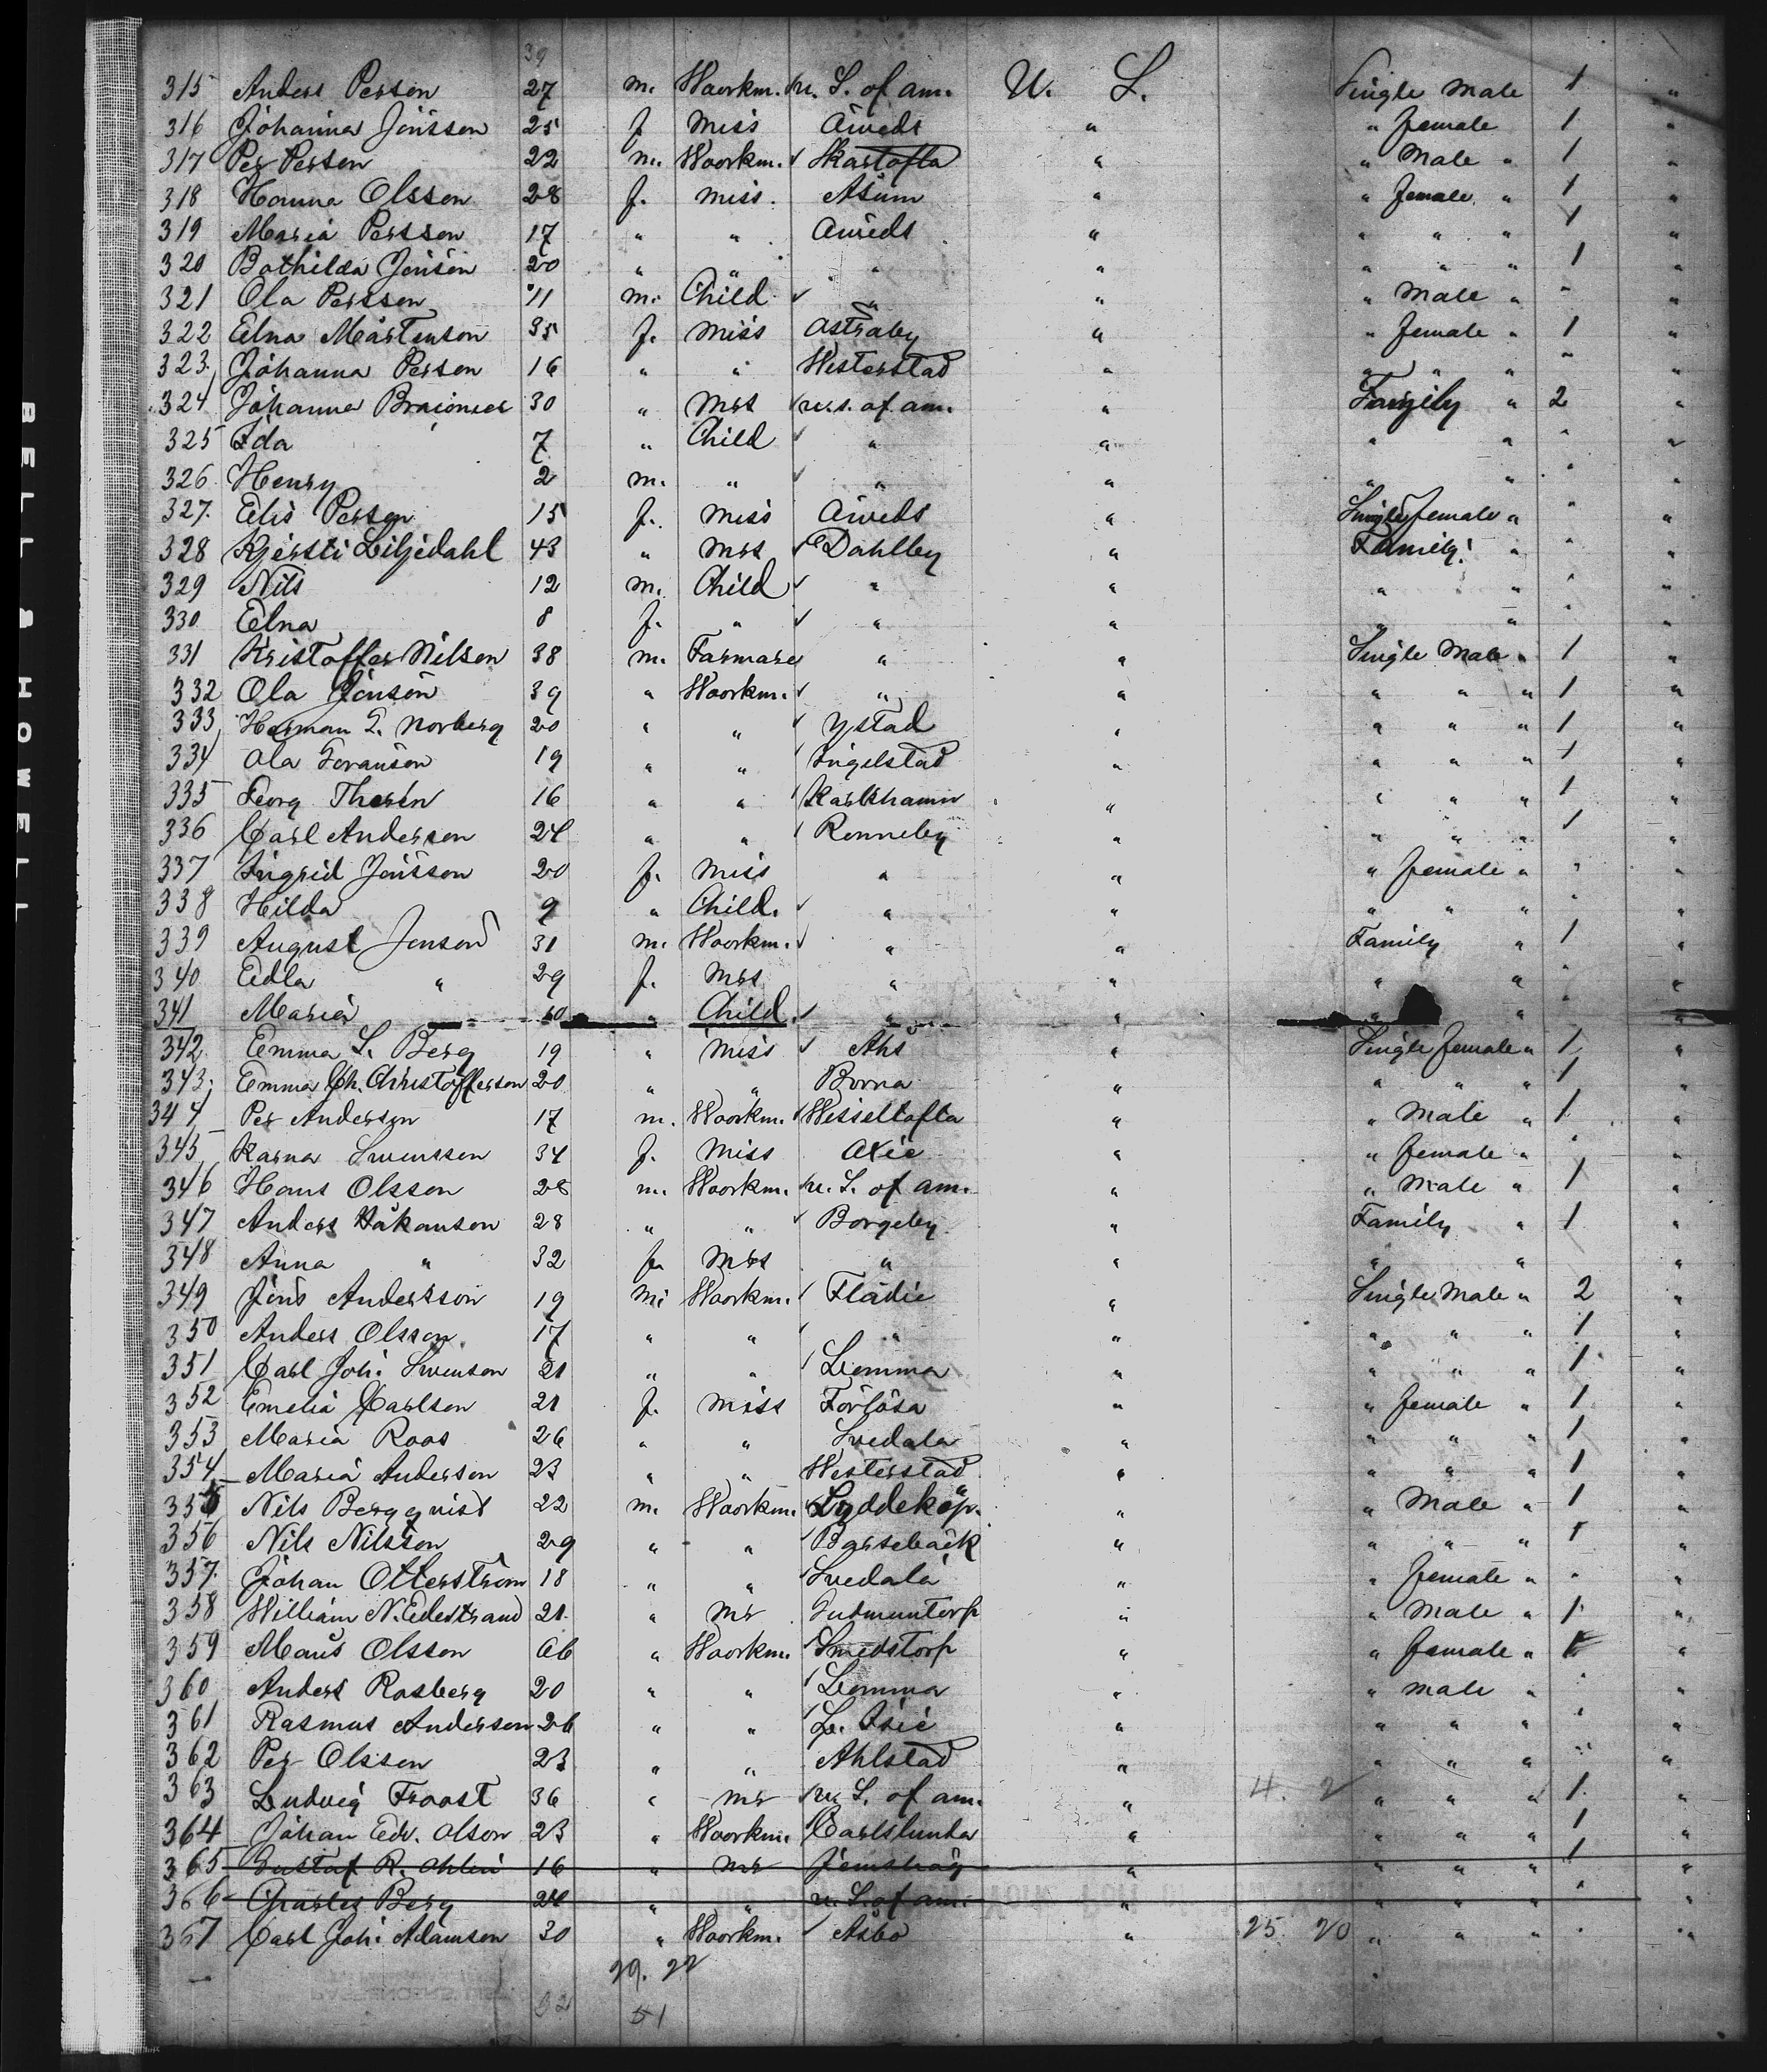 39
315 Anders Person 27 m. Woorkm. u. S. of am. U. S. Single Male 1 "
316 Johanna Jönsson 25 f Miss Äweds " " female 1 "
317 Per Person 22 m. Woorkm. Skartofta " " Male " 1 "
318 Hanna Olsson 28 f. Miss. Asum " " female " 1 "
319 Maria Persson 17 " " Aweds " " " " 1 "
320 Bothilda Jönson 20 " " " " " " " 1 "
321 Ola Persson 11 m. Child " " " Male " " "
322 Elna Mårtenson 35 f. Miss Astraby " " female " 1 "
323. Johanna Person 16 " " Westerstad " " " " " "
324 Johanna 30 " Mrs u. s. of am. " Family " 2 "
325 Ida 7 " Child " " " " " "
326 Henry 2 m. " " " " " "
327. Elis Person 15 f. Miss Aweds " Single female " " "
328 Kjersti Liljedahl 43 " Mrs Dahlby " Family " " "
329 Nils 12 m. Child " " " " " "
330 Elna 8 f. " " " " " "
331 Kristoffer Nilson 38 m. Farmare " " Single Male " 1 "
332 Ola Jönson 39 " Woorkm. " " " " " 1 "
333 Herman G. Norberg 20 " " Ystad " " " " 1 "
334 Ola Goranson 19 " " Ingelstad " " " " 1 "
335 Georg Therén 16 " " Karlshamn " " " " 1 "
336 Carl Anderson 24 " " Ronneby " " " " 1 "
337 Ingrid Jönsson 20 f. Miss " " " female " " "
338 Hilda 9 " Child. " " " " " " "
339 August Jonson 31 m. Woorkm. " " Family " 1 "
340 Edla " 29 f. Mrs " " " " " "
341 Maria 10 " Child " " " " " "
342 Emma S. Berg 19 " Miss Ahs " Single female " 1 "
343. Emma Ch. Christofferson 20 " " Borna " " " " 1 "
344 Per Anderson 17 m. Woorkm. Wesseltofta " " Male " 1 "
345 Karna Swensson 34 f. Miss Oxie " " female " " "
346 Hans Olsson 28 m. Woorkm. u. S. of am. " " Male " 1 "
347 Anders Håkanson 28 " " Borgeby " Family " 1 "
348 Anna " 32 f. Mrs " " " " "
349 Jöns Andersson 19 m. Woorkm. Flädie " Single Male " 2 "
350 Anders Olsson 17 " " " " " " " 1 "
351 Carl Joh. Swenson 21 " " Lomma " " " " 1 "
352 Emelia Carlson 21 f. Miss Förlösa " " female " 1 "
353 Maria Roos 26 " " Svedala " " " " 1 "
354 Maria Anderson 23 " " Westerstad " " " " 1 "
355 Nils Bergqvist 22 m. Woorkm. Lyddeköp. " " Male " 1 "
356 Nils Nilsson 29 " " Barsebäck " " " " 1 "
357. Johan Otterstrom 18 " " Svedala " " female " " "
358 William N. Edestrand 21 " Mr Gudmuntorp " " Male " 1 "
359 Måns Olsson " Woorkm. Smedstorp " " female " 1 "
360 Anders Rosberg 20 " " Lomma " " male " " "
361 Rasmus Anderson 26 " " L. Isie " " " " " "
362 Per Olsson 23 " " Ahlstad " " " " " "
363 Ludvig Froost 36 " Mr u. S. of am. " 4. 2 " " " 1 "
364 Johan Edv. Olson 23 " Woorkm. Carlslunda " " " " 1 "
365 Gustaf R. Ohlin 16 " Mr Jemshög " " " " 1 "
366 Charles Berg 24 " " u. S. of am. " " " " " "
367 Carl Joh. Adamson 30 " Woorkm. Asbo " 25. 20 " " " " "
29. 22
32 51
BELL & HOWELL